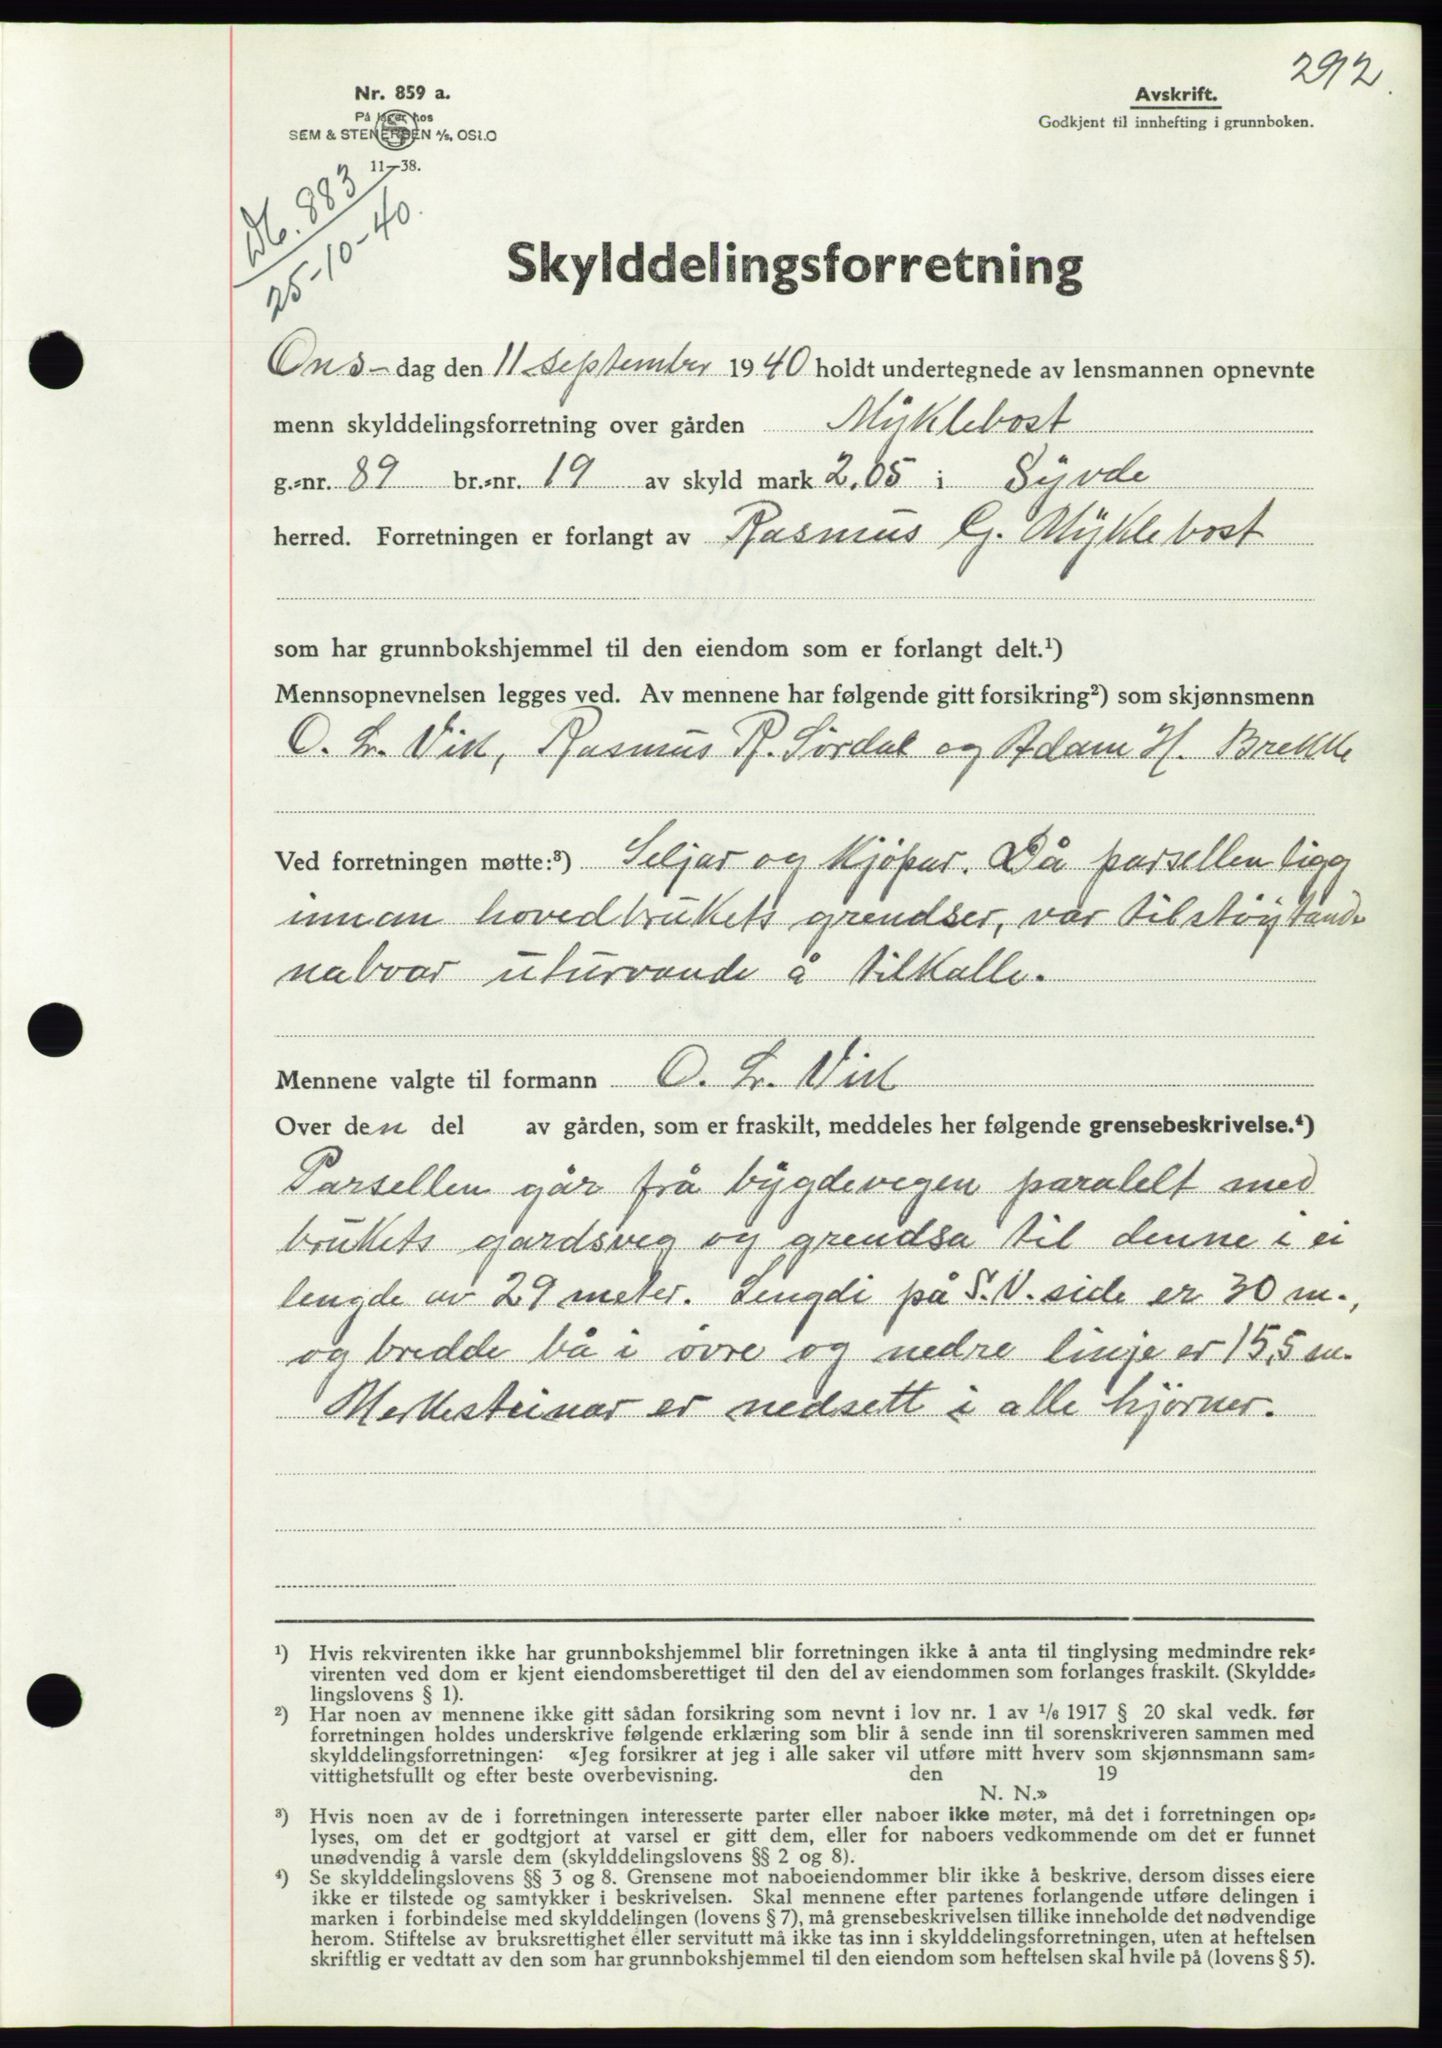 292.
Nr. 859 a.
På lager hos
SEM & STENERSEN A/S, OSLO
11—38.
Avskrift.
Godkjent til innhefting i grunnboken.
Db. 883
25-10-40.
Skylddelingsforretning
Ons- dag den 11 september 1940 holdt undertegnede av lensmannen opnevnte
menn skylddelingsforretning over gården Myklebost
g.-nr. 89 br.-nr. 19 av skyld mark 2,05 i Syvde
herred. Forretningen er forlangt av Rasmus G. Myklebost
som har grunnbokshjemmel til den eiendom som er forlangt delt.¹)
Mennsopnevnelsen legges ved. Av mennene har følgende gitt forsikring²) som skjønnsmenn
O. Lr. Vik, Rasmus R. Sørdal og Adam H. Brekke
Ved forretningen møtte:³) Seljar og kjøpar. Då parsellen ligg
innan hovedbrukets grendser, var tilstøytande
naboar uturvande å tilkalle.
Mennene valgte til formann O. Lr. Vik
Over den del av gården, som er fraskilt, meddeles her følgende grensebeskrivelse.⁴)
Parsellen går frå bygdevegen paralelt med
brukets gardsveg og grendsa til denne i ei
lengde av 29 meter. Lengdi på S.V. side er 30 m.,
og bredde bå i øvre og nedre linje er 15,5 m.
Merkesteinar er nedsett i alle hjørner.
¹) Hvis rekvirenten ikke har grunnbokshjemmel blir forretningen ikke å anta til tinglysing medmindre rek-
virenten ved dom er kjent eiendomsberettiget til den del av eiendommen som forlanges fraskilt. (Skyldde-
lingslovens § 1).
²) Har noen av mennene ikke gitt sådan forsikring som nevnt i lov nr. 1 av 1/6 1917 § 20 skal vedk. før
forretningen holdes underskrive følgende erklæring som blir å sende inn til sorenskriveren sammen med
skylddelingsforretningen: «Jeg forsikrer at jeg i alle saker vil utføre mitt hverv som skjønnsmann sam-
vittighetsfullt og efter beste overbevisning. den 19
N. N.»
³) Hvis noen av de i forretningen interesserte parter eller naboer ikke møter, må det i forretningen op-
lyses, om det er godtgjort at varsel er gitt dem, eller for naboers vedkommende om det er funnet
unødvendig å varsle dem (skylddelingslovens §§ 2 og 8).
⁴) Se skylddelingslovens §§ 3 og 8. Grensene mot naboeiendommer blir ikke å beskrive, dersom disses eiere
ikke er tilstede og samtykker i beskrivelsen. Skal mennene efter partenes forlangende utføre delingen i
marken i forbindelse med skylddelingen (lovens § 7), må grensebeskrivelsen tillike inneholde det nødvendige
herom. Stiftelse av bruksrettighet eller servitutt må ikke tas inn i skylddelingsforretningen, uten at heftelsen
skriftlig er vedtatt av den som har grunnbokshjemmel til den eiendom som heftelsen skal hvile på (lovens § 5).